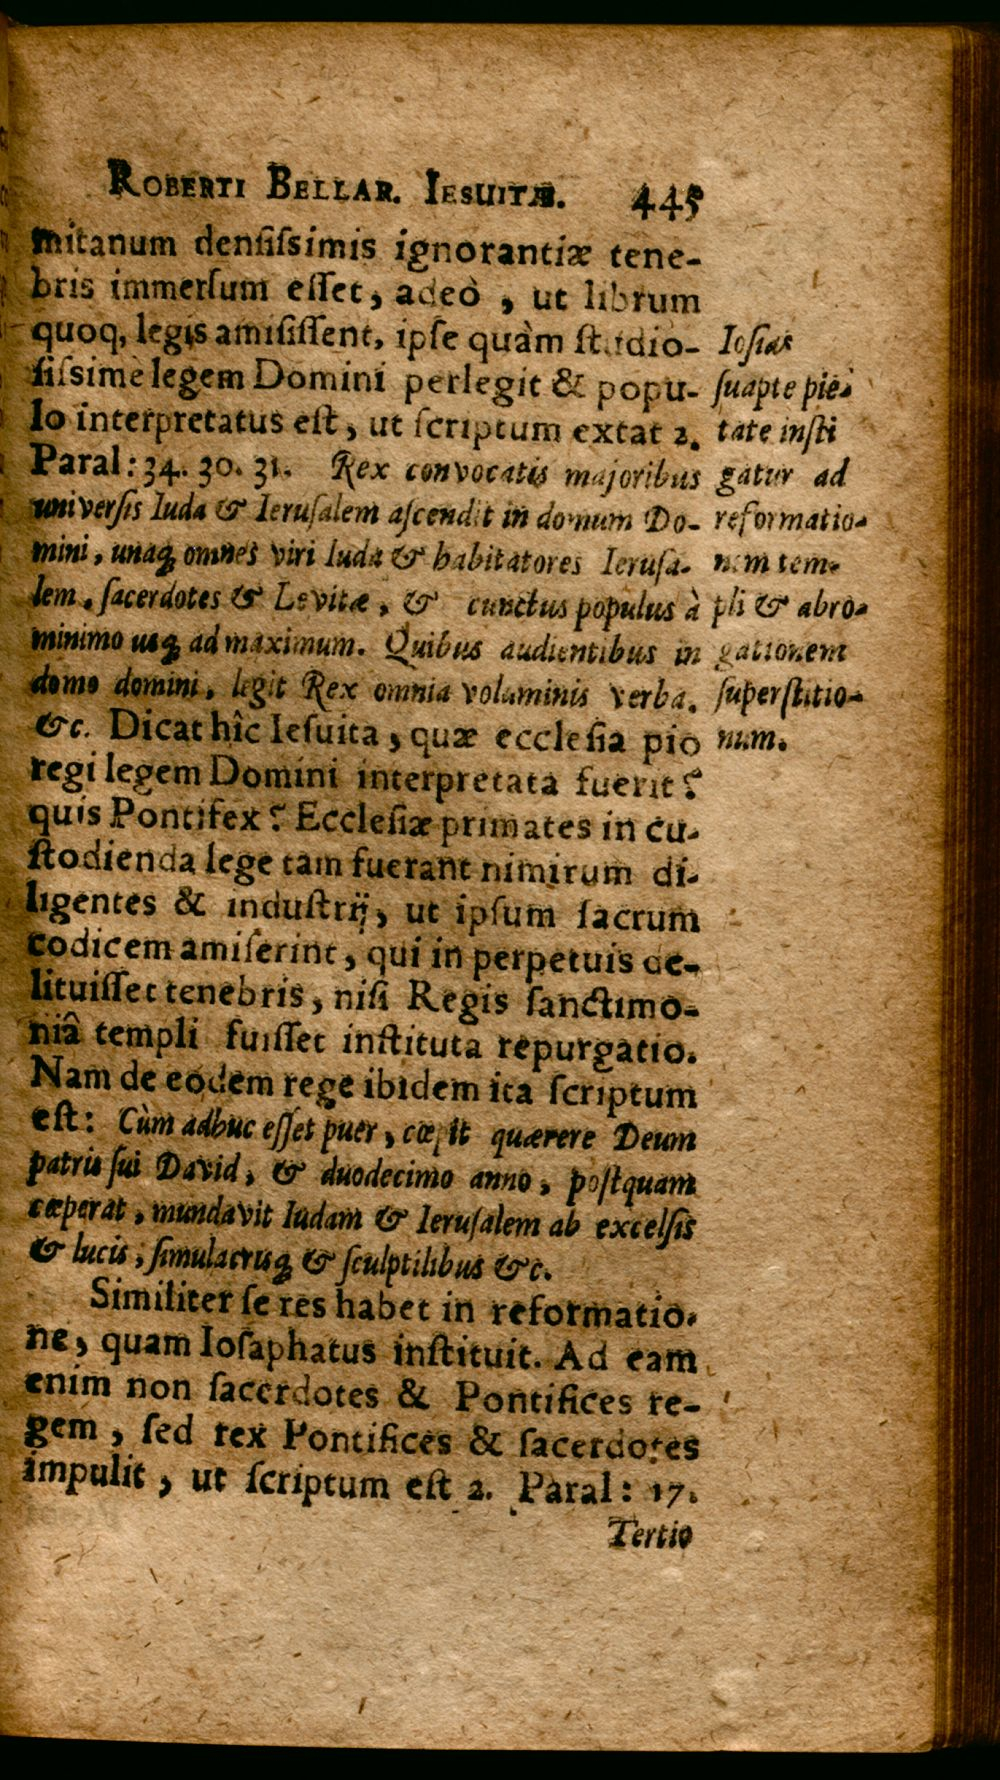 ROBERTI BELLAR. IESUITÆ. 445
mitanum densissimis ignorantiæ tene-
bris immersum esset, adeò, ut librum
quoq, legis amisissent, ipse quàm studio-
sissimè legem Domini perlegit & popu-
lo interpretatus est, ut scriptum extat 2.
Paral: 34. 30. 31. Rex convocatis majoribus
universis Iuda & Ierusalem ascendit in domum Do-
mini, unaq; omnes viri Iuda & habitatores Ierusa-
lem, sacerdotes & Levitæ, & cunctus populus à
minimo usq; ad maximum. Quibus audientibus in
domo domini, legit Rex omnia voluminis verba.
&c. Dicat hîc Iesuita, quæ ecclesia pio
regi legem Domini interpretata fuerit?
quis Pontifex? Ecclesiæ primates in cu-
stodienda lege tam fuerant nimirum di-
ligentes & industrij, ut ipsum sacrum
codicem amiserint, qui in perpetuis de-
lituisset tenebris, nisi Regis sanctimo-
niâ templi fuisset instituta repurgatio.
Nam de eodem rege ibidem ita scriptum
est: Cùm adhuc esset puer, cœpit quærere Deum
patris sui David, & duodecimo anno, postquam
cœperat, mundavit Iudam & Ierusalem ab excelsis
& lucis, simulacrisq; & sculptilibus &c.
Similiter se res habet in reformatio-
ne, quam Iosaphatus instituit. Ad eam
enim non sacerdotes & Pontifices re-
gem, sed rex Pontifices & sacerdotes
impulit, ut scriptum est 2. Paral: 17.
Tertio
Iosias
suapte pie-
tate insti
gatur ad
reformatio-
nem tem-
pli & abro-
gationem
superstitio-
num.